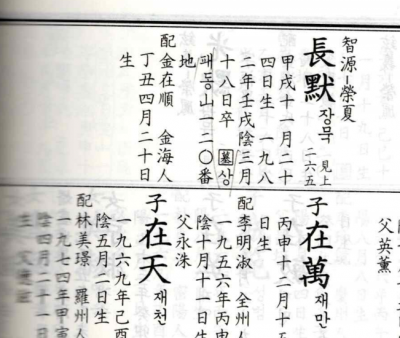 智源-榮夏
長默 장묵 見上 二六五
甲戌十一月二十
四日生 一九八
二年壬戌陰三月
十八日卒 墓상
패등山一二〇番
地
配金在順 金海人
丁丑四月二十日
生
父英薰
子在萬 재만
丙申十二月十五
日生
配李明淑 全州人
一九五六年丙申
陰十月十一日生
父永洙
子在天 재천
一九六九年己酉
陰五月二日生
配林美璟 羅州人
一九七四年甲寅
陰四月二十一日
生